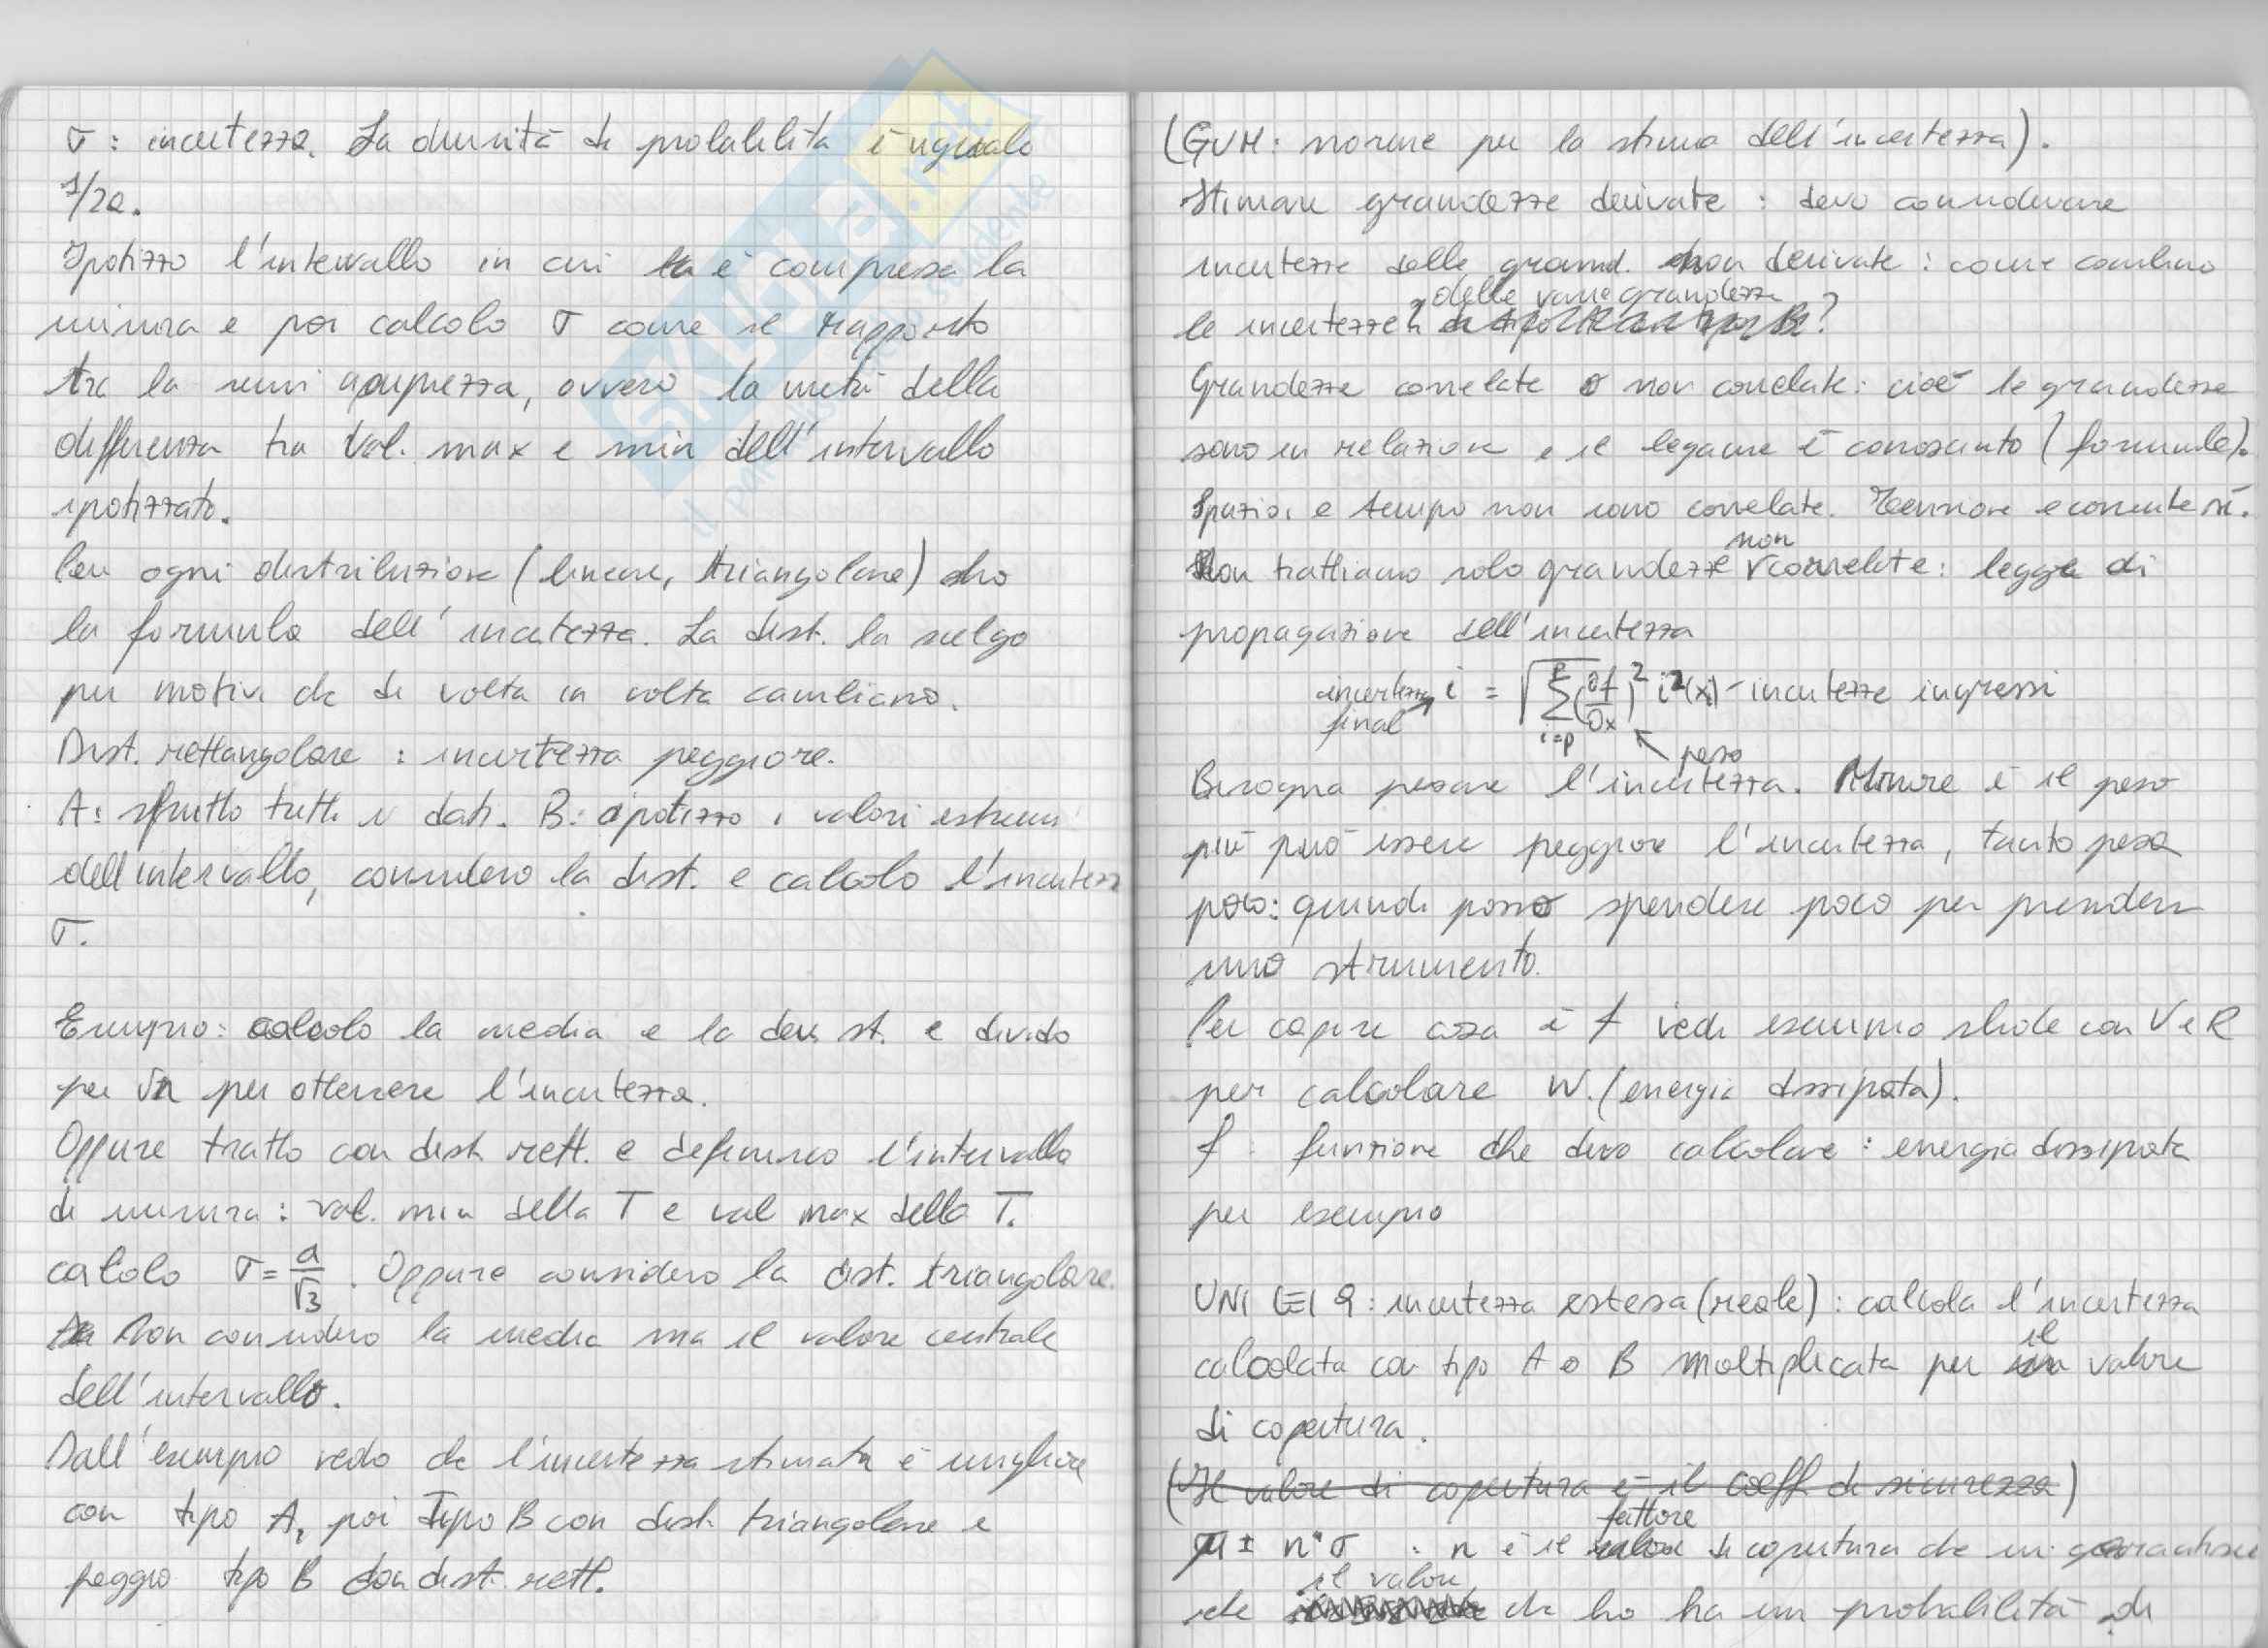 σ : incertezza. La densità di probabilità è uguale
1/2a.
Ipotizzo l'intervallo in cui è compresa la
misura e poi calcolo σ come il rapporto
tra la semi ampiezza, ovvero la metà della
differenza tra Val. max e min dell'intervallo
ipotizzato.
Per ogni distribuzione (lineare, triangolare) ho
la formula dell'incertezza. La dist. la scelgo
per motivi che di volta in volta cambiano.
Dist. rettangolare : incertezza peggiore.
A: sfrutto tutti i dati. B: ipotizzo i valori estremi
dell'intervallo, considero la dist. e calcolo l'incertezz
σ.
Esempio: calcolo la media e la dev. st. e divido
per √n per ottenere l'incertezza.
Oppure tratto con dist. rett. e definisco l'intervallo
di misura : val. min della T e val max della T.
calcolo σ = a/√3 . Oppure considero la dist. triangolare.
Non considero la media ma il valore centrale
dell'intervallo.
Dall'esempio vedo che l'incertezza stimata è migliore
con tipo A, poi Tipo B con dist. triangolare e
peggio tipo B con dist. rett.
(GUM: norme per la stima dell'incertezza).
Stimare grandezze derivate : devo considerare
incertezze delle grand. non derivate : come combino
le incertezze delle varie grandezze ?
Grandezze correlate o non correlate: cioè le grandezze
sono in relazione e il legame è conosciuto (formule).
Spazio e tempo non sono correlate. Tensione e corrente sì.
Non trattiamo solo grandezze non correlate: legge di
propagazione dell'incertezza
incertezza final i = √ Σ i=p p (∂f/∂x)² i²(xi) - incertezze ingressi
peso
Bisogna pesare l'incertezza. Minore è il peso
più può essere peggiore l'incertezza, tanto pesa
poco: quindi posso spendere poco per prendere
uno strumento.
Per capire cosa è f vedi esempio slide con V e R
per calcolare W. (energia dissipata).
f : funzione che devo calcolare : energia dissipata
per esempio
UNI CEI 9 : incertezza estesa (reale) : calcola l'incertezza
calcolata con tipo A o B moltiplicata per il valore
di copertura.
(Il valore di copertura è il coeff. di sicurezza)
μ ± n·σ : n è il fattore di copertura che mi garantisce
che il valore che ho ha un probabilità di